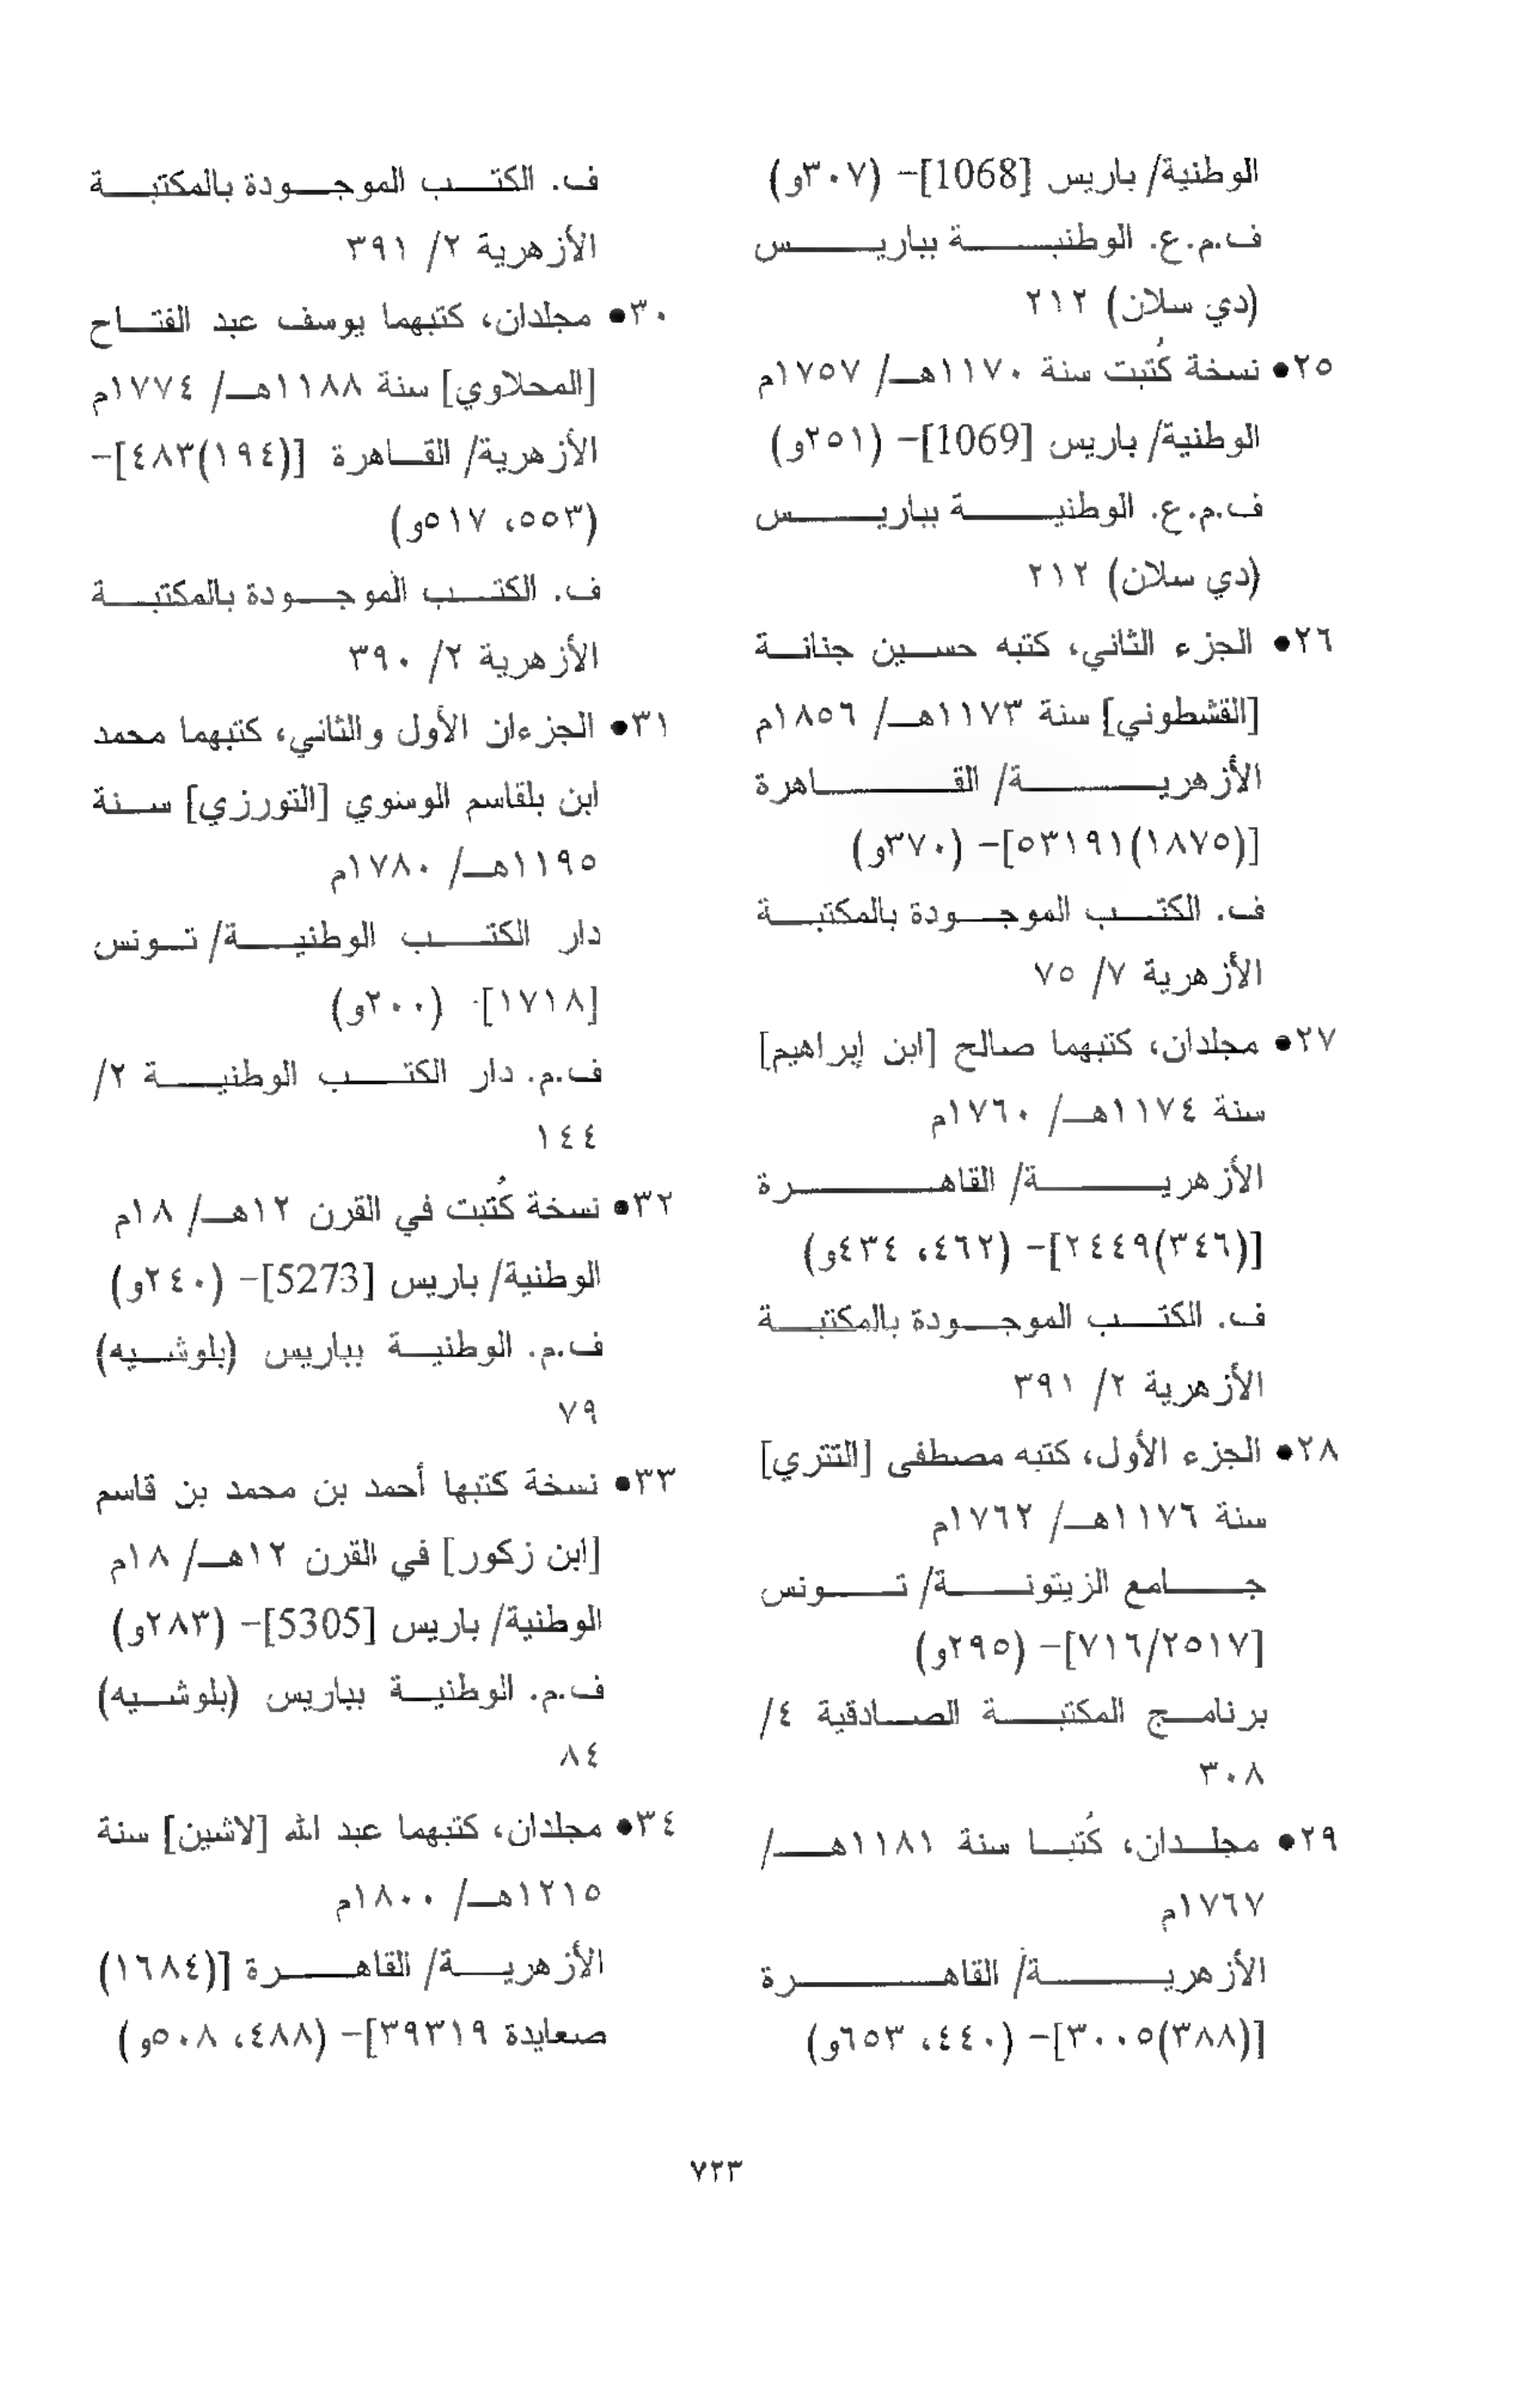 الوطنية/ باريس [1068]- (٣٠٧و)
ف.م.ع. الوطنية بباريس
(دي سلان) ٢١٢
٢٥● نسخة كُتبت سنة ١١٧٠هـ/ ١٧٥٧م
الوطنية/ باريس [1069]- (٢٥١و)
ف.م.ع. الوطنية بباريس
(دي سلان) ٢١٢
٢٦● الجزء الثاني، كتبه حسين جنانة
[القشطوني] سنة ١١٧٣هـ/ ١٨٥٦م
الأزهرية/ القاهرة
[(١٨٧٥)٥٣١٩١]- (٣٧٠و)
ف. الكتب الموجودة بالمكتبة
الأزهرية ٧/ ٧٥
٢٧● مجلدان، كتبهما صالح [ابن إبراهيم]
سنة ١١٧٤هـ/ ١٧٦٠م
الأزهرية/ القاهرة
[(٣٤٦)٢٤٤٩]- (٤٦٢، ٤٣٤و)
ف. الكتب الموجودة بالمكتبة
الأزهرية ٢/ ٣٩١
٢٨● الجزء الأول، كتبه مصطفى [التتري]
سنة ١١٧٦هـ/ ١٧٦٢م
جامع الزيتونة/ تونس
[٧١٦/٢٥١٧]- (٢٩٥و)
برنامج المكتبة الصادقية ٤/
٣٠٨
٢٩● مجلدان، كُتبا سنة ١١٨١هـ/
١٧٦٧م
الأزهرية/ القاهرة
[(٣٨٨)٣٠٠٥]- (٤٤٠، ٦٥٣و)
ف. الكتب الموجودة بالمكتبة
الأزهرية ٢/ ٣٩١
٣٠● مجلدان، كتبهما يوسف عبد الفتاح
[المحلاوي] سنة ١١٨٨هـ/ ١٧٧٤م
الأزهرية/ القاهرة [(١٩٤)٤٨٣]-
(٥٥٣، ٥١٧و)
ف. الكتب الموجودة بالمكتبة
الأزهرية ٢/ ٣٩٠
٣١● الجزءان الأول والثاني، كتبهما محمد
ابن بلقاسم الوسوي [التورزي] سنة
١١٩٥هـ/ ١٧٨٠م
دار الكتب الوطنية/ تونس
[١٧١٨]- (٢٠٠و)
ف.م. دار الكتب الوطنية ٢/
١٤٤
٣٢● نسخة كُتبت في القرن ١٢هـ/ ١٨م
الوطنية/ باريس [5273]- (٢٤٠و)
ف.م. الوطنية بباريس (بلوشيه)
٧٩
٣٣● نسخة كتبها أحمد بن محمد بن قاسم
[ابن زكور] في القرن ١٢هـ/ ١٨م
الوطنية/ باريس [5305]- (٢٨٣و)
ف.م. الوطنية بباريس (بلوشيه)
٨٤
٣٤● مجلدان، كتبهما عبد الله [لاشين] سنة
١٢١٥هـ/ ١٨٠٠م
الأزهرية/ القاهرة [(١٦٨٤)
صعايدة ٣٩٣١٩]- (٤٨٨، ٥٠٨و)
٧٢٣